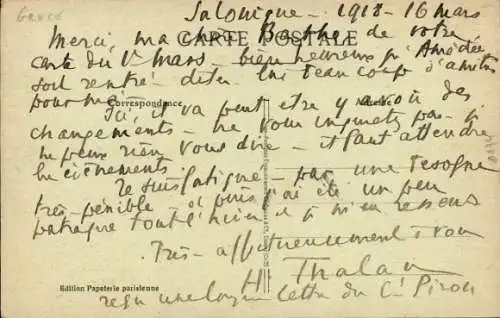 Grece
Salonique - 1918 - 16 mars
CARTE POSTALE
Merci, ma chère Berthe de votre
carte du 1er mars - bien heureux qu'Amédée
soit rentré - dites lui beaucoup d'amitiés
pour moi
Correspondance
Ici il va peut être y avoir des
changements - ne vous inquiétez pas - je
ne peux rien vous dire - il faut attendre
les événements
Je suis fatigué - par une besogne
très pénible - et puis j'ai été un peu
patraque tout l'hiver et je m'en ressens
Très affectueusement à vous
H Thalan
Edition Papeterie parisienne
reçu une longue lettre du Ct Pirou